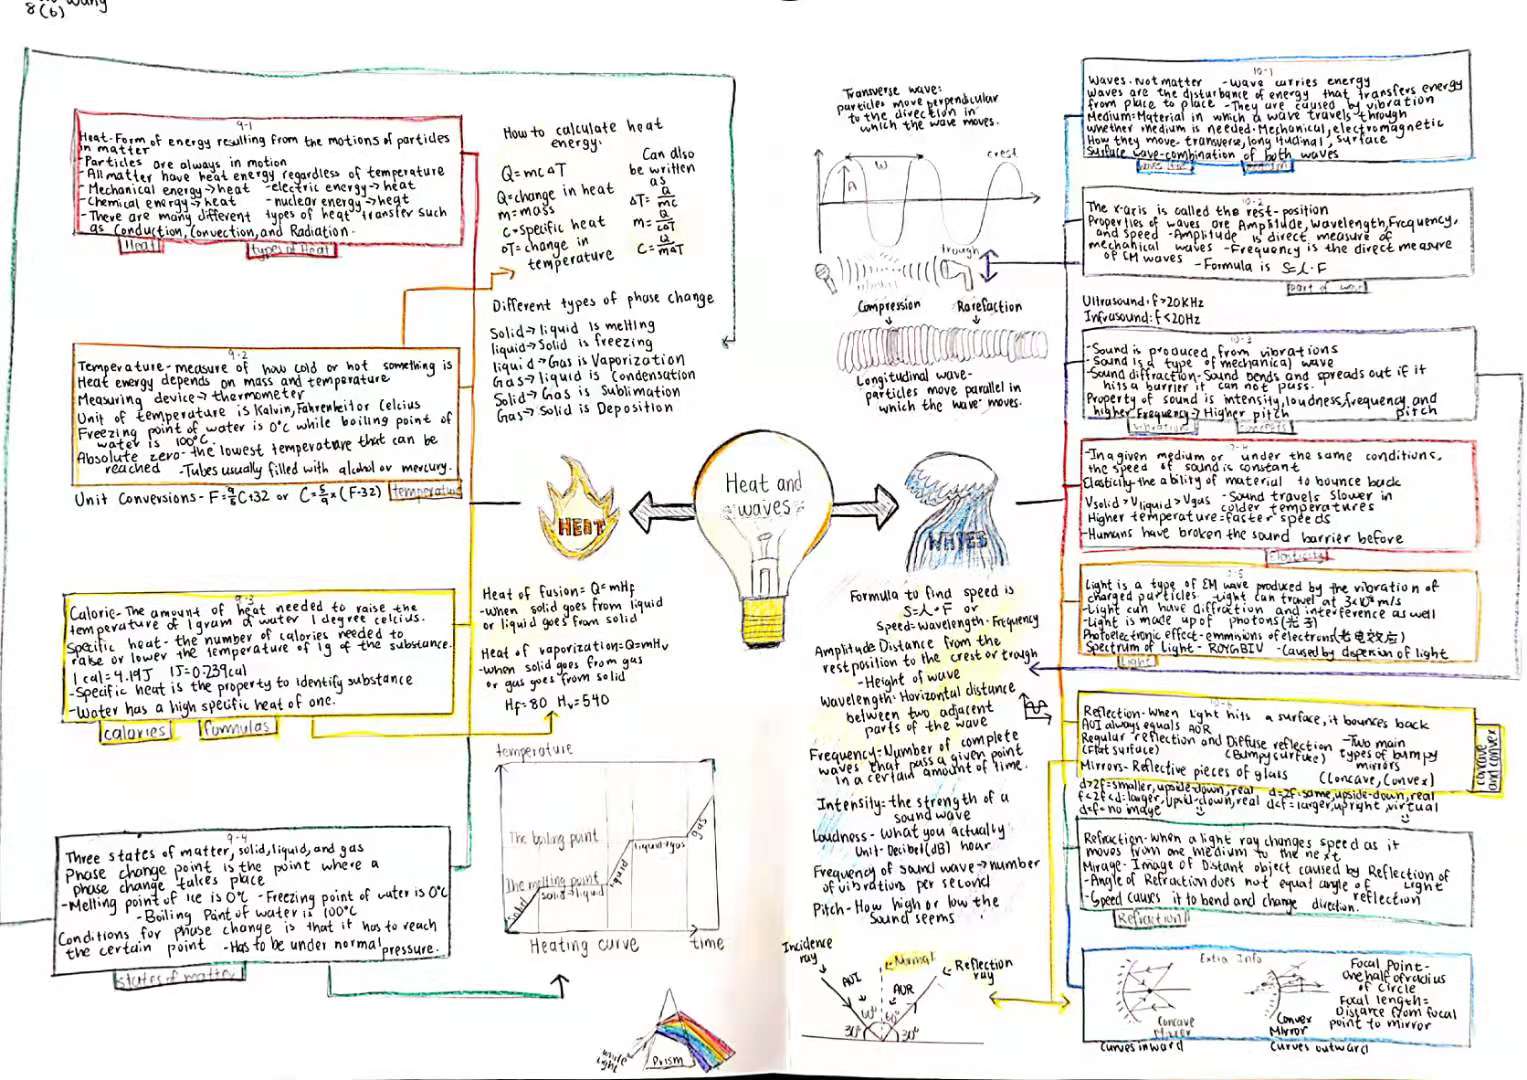 Wang
8(6)
9-1
Heat-Form of energy resulting from the motions of particles
in matter
-Particles are always in motion
-All matter have heat energy regardless of temperature
-Mechanical energy→heat -electric energy→heat
-Chemical energy→heat -nuclear energy→heat
-There are many different types of heat transfer such
as Conduction, Convection, and Radiation.
Heat
types of Heat
9-2
Temperature-measure of how cold or hot something is
Heat energy depends on mass and temperature
Measuring device→thermometer
Unit of temperature is Kalvin, Fahrenheit or Celcius
Freezing point of water is 0°C while boiling point of
water is 100°C.
Absolute zero-the lowest temperature that can be
reached -Tubes usually filled with alcohol or mercury.
Unit Conversions- F=9/5C+32 or C=5/9×(F-32)
temperature
9-3
Calorie-The amount of heat needed to raise the
temperature of 1gram of water 1 degree celcius.
Specific heat-the number of calories needed to
raise or lower the temperature of 1g of the substance.
1 cal=4.19J 1J=0.239cal
-Specific heat is the property to identify substance
-Water has a high specific heat of one.
calories
formulas
9-4
Three states of matter, solid, liquid, and gas
Phase change point is the point where a
phase change takes place
-Melting point of ice is 0°C -Freezing point of water is 0°C
-Boiling Point of water is 100°C
Conditions for phase change is that it has to reach
the certain point -Has to be under normal pressure.
states of matter
How to calculate heat
energy:
Q=mcΔT
Q=change in heat
m=mass
C=Specific heat
ΔT=change in
temperature
Can also
be written
as
ΔT=Q/mc
m=Q/cΔT
C=Q/mΔT
Different types of phase change
Solid→liquid is melting
liquid→Solid is freezing
liquid→Gas is Vaporization
Gas→liquid is Condensation
Solid→Gas is Sublimation
Gas→Solid is Deposition
HEAT
Heat and
waves
WAVES
Heat of fusion=Q=mHf
-When solid goes from liquid
or liquid goes from solid
Heat of vaporization=Q=mHv
-When solid goes from gas
or gas goes from solid
Hf=80 Hv=540
temperature
The boiling point
The melting point
Solid
solid-liquid
liquid
liquid+gas
gas
Heating curve
time
white
light
Prism
Transverse wave:
particles move perpendicular
to the direction in
which the wave moves.
W
A
crest
trough
Compression
Rarefaction
Longitudinal wave-
particles move parallel in
which the wave moves.
Formula to find speed is
S=λ·F or
Speed=Wavelength·Frequency
Amplitude: Distance from the
rest position to the crest or trough
-Height of wave
Wavelength: Horizontal distance
between two adjacent
parts of the wave
Frequency=Number of complete
waves that pass a given point
in a certain amount of time.
Intensity=the strength of a
sound wave
Loudness-What you actually
Unit-Decibel(dB) hear
Frequency of sound wave→number
of vibrations per second
Pitch-How high or low the
sound seems
Incidence
ray
Normal
Reflection
ray
AOI
AOR
60°
60°
30°
30°
10-1
Waves-Not matter -Wave carries energy
Waves are the disturbance of energy that transfers energy
from place to place -They are caused by vibration
Medium:Material in which a wave travels through
Whether medium is needed-Mechanical, electromagnetic
How they move-transverse, longitudinal, surface
Surface wave-combination of both waves
medium
10-2
The x-axis is called the rest-position
Properties of waves are Amplitude, Wavelength, Frequency,
and Speed -Amplitude is direct measure of
mechanical waves -Frequency is the direct measure
of EM waves -Formula is S=λ·F
part of wave
Ultrasound: f>20KHz
Infrasound: f<20Hz
10-3
-Sound is produced from vibrations
-Sound is a type of mechanical wave
-Sound diffraction-Sound bends and spreads out if it
hits a barrier it can not pass.
Property of sound is intensity, loudness, frequency, and
higher Frequency→Higher pitch pitch
vibrations
concepts
-In a given medium or under the same conditions,
the speed of sound is constant
Elasticity-the ability of material to bounce back
Vsolid>Vliquid>Vgas -Sound travels slower in
colder temperatures
Higher temperature=faster speeds
-Humans have broken the sound barrier before
Elasticity
Light is a type of EM wave produced by the vibration of
charged particles -Light can travel at 3×10⁸m/s
-Light can have diffraction and interference as well
-Light is made up of photons(光子)
Photoelectronic effect-emmnions of electrons(光电效应)
Spectrum of Light- ROYGBIV -Caused by dispersion of light
Light
10-6
Reflection-When Light hits a surface, it bounces back
AOI always equals AOR
Regular reflection and Diffuse reflection -Two main
(Flat surface) (Bumpy surface) types of bumpy
mirrors
Mirrors-Reflective pieces of glass (Concave, Convex)
concave
and convex
d>2f=smaller, upside-down, real d=2f=same, upside-down, real
f<2f<d=larger, upside-down, real d<f=larger, upright, virtual
d=f=no image
Refraction-When a light ray changes speed as it
moves from one medium to the next
Mirage-Image of Distant object caused by Reflection of
Light
-Angle of Refraction does not equal angle of reflection
-Speed causes it to bend and change direction.
Refraction
Extra Info
Concave
Mirror
Curves inward
Convex
Mirror
Curves outward
Focal Point-
one half of radius
of circle
Focal length=
Distance from focal
point to mirror